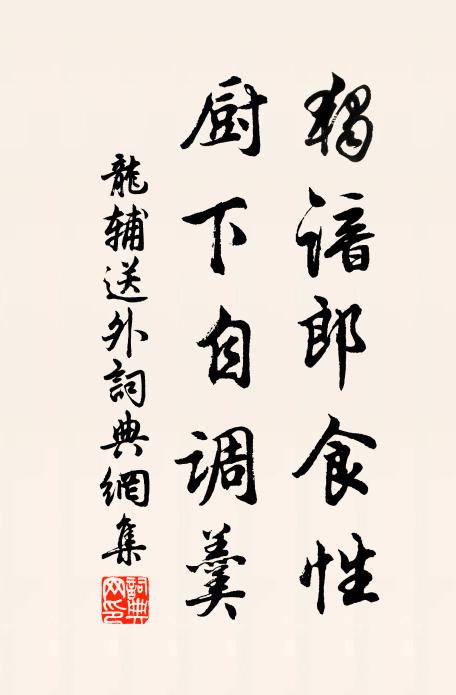 獨諳郎食性
厨下自调羹
龍辅送外詞典網集
詞典網印